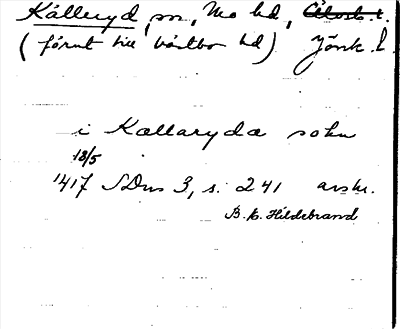 Kålleryd, sn, Mo hd,
(förut till Västbo hd) Jönk. l.
i Kallaryda sokn
18/5
1417 SDns 3, s. 241 avskr.
B. E. Hildebrand